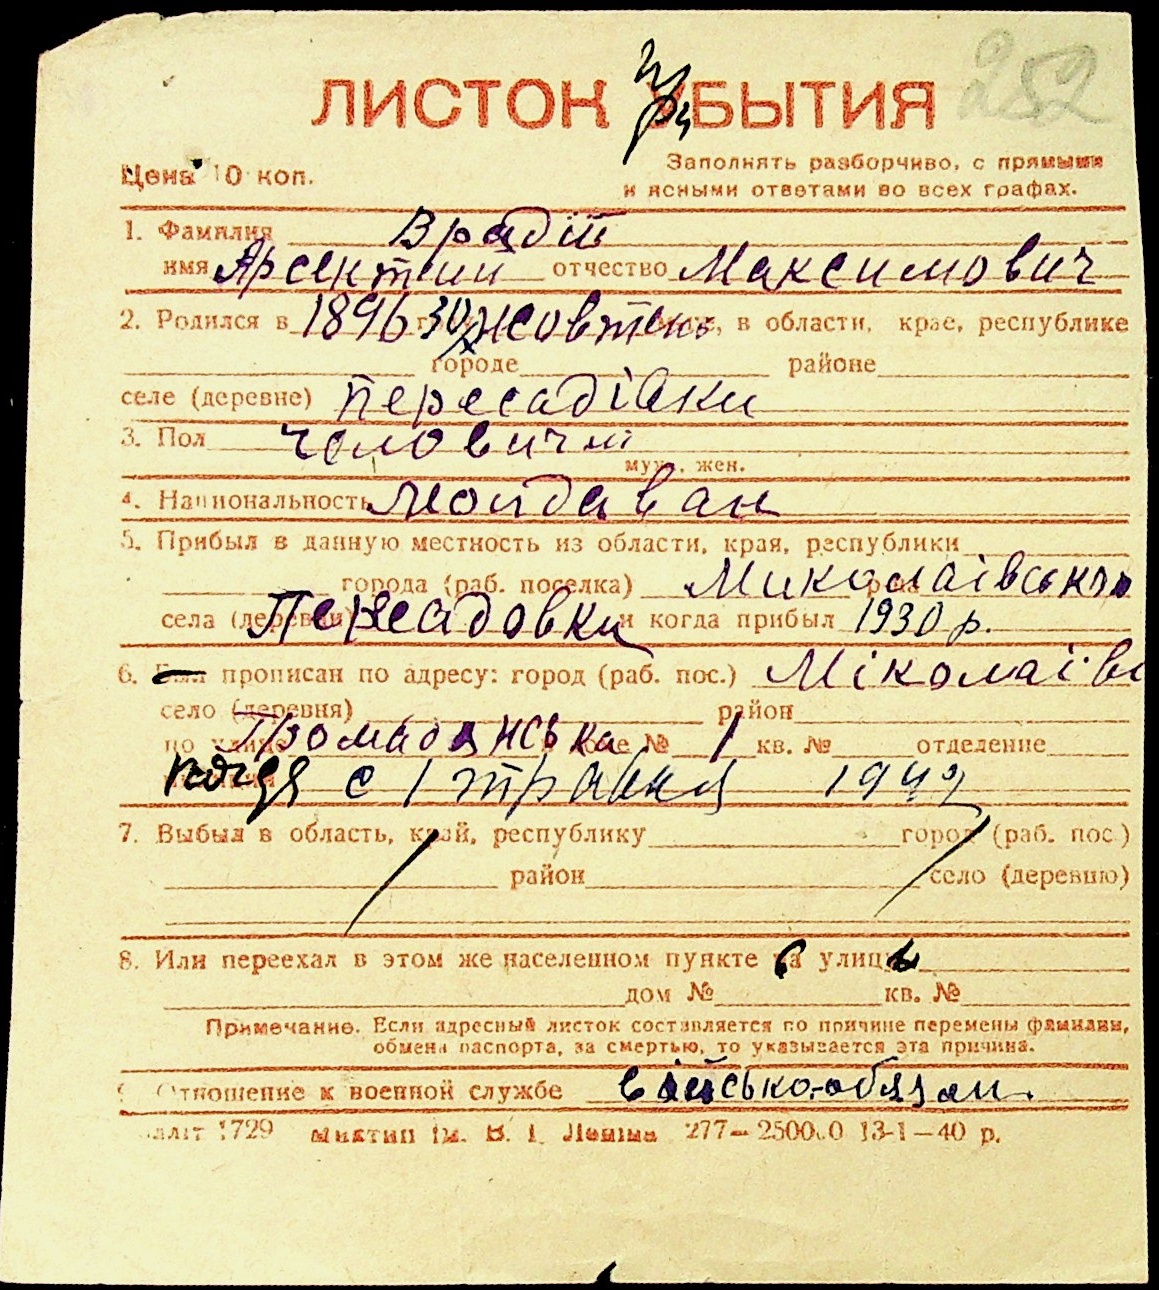 252
ЛИСТОК УБЫТИЯ
Цена 10 коп.
Заполнять разборчиво, с прямыми
и ясными ответами во всех графах.
1. Фамилия Врадій
имя Арсентий отчество Максимович
2. Родился в 1896 30 жовтень, в области, крае, республике
городе районе
селе (деревне) Пересадівки
3. Пол чоловичій
муж., жен.
4. Национальность Молдаван
5. Прибыл в данную местность из области, края, республики
города (раб. поселка) Миколаівского
села (деревни) Пересадовки и когда прибыл 1930 р.
6. Был прописан по адресу: город (раб. пос.) Міколаів
село (деревня) район
по улице Громадянська № 1 кв. № отделение
с 1 травня 1942
7. Выбыл в область, край, республику город (раб. пос.)
район село (деревню)
8. Или переехал в этом же населенном пункте на улицу
дом № кв. №
Примечание. Если адресный листок составляется по причине перемены фамилии,
обмена паспорта, за смертью, то указывается эта причина.
9. Отношение к военной службе військо-обязан.
1729 им. В. І. Леніна 277—250000 13-1—40 р.